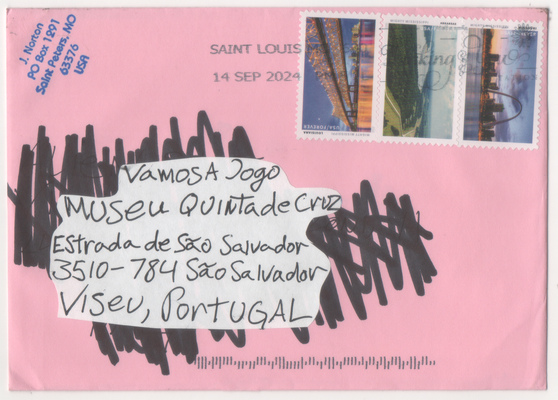 J. Norton
PO Box 1291
Saint Peters, MO
63376
USA
SAINT LOUIS M
14 SEP 2024
USA/FOREVER
VAMOS A JOGO
MUSEU QUINTA de CRUZ
Estrada de São Salvador
3510-784 São Salvador
VISEU, PORTUGAL